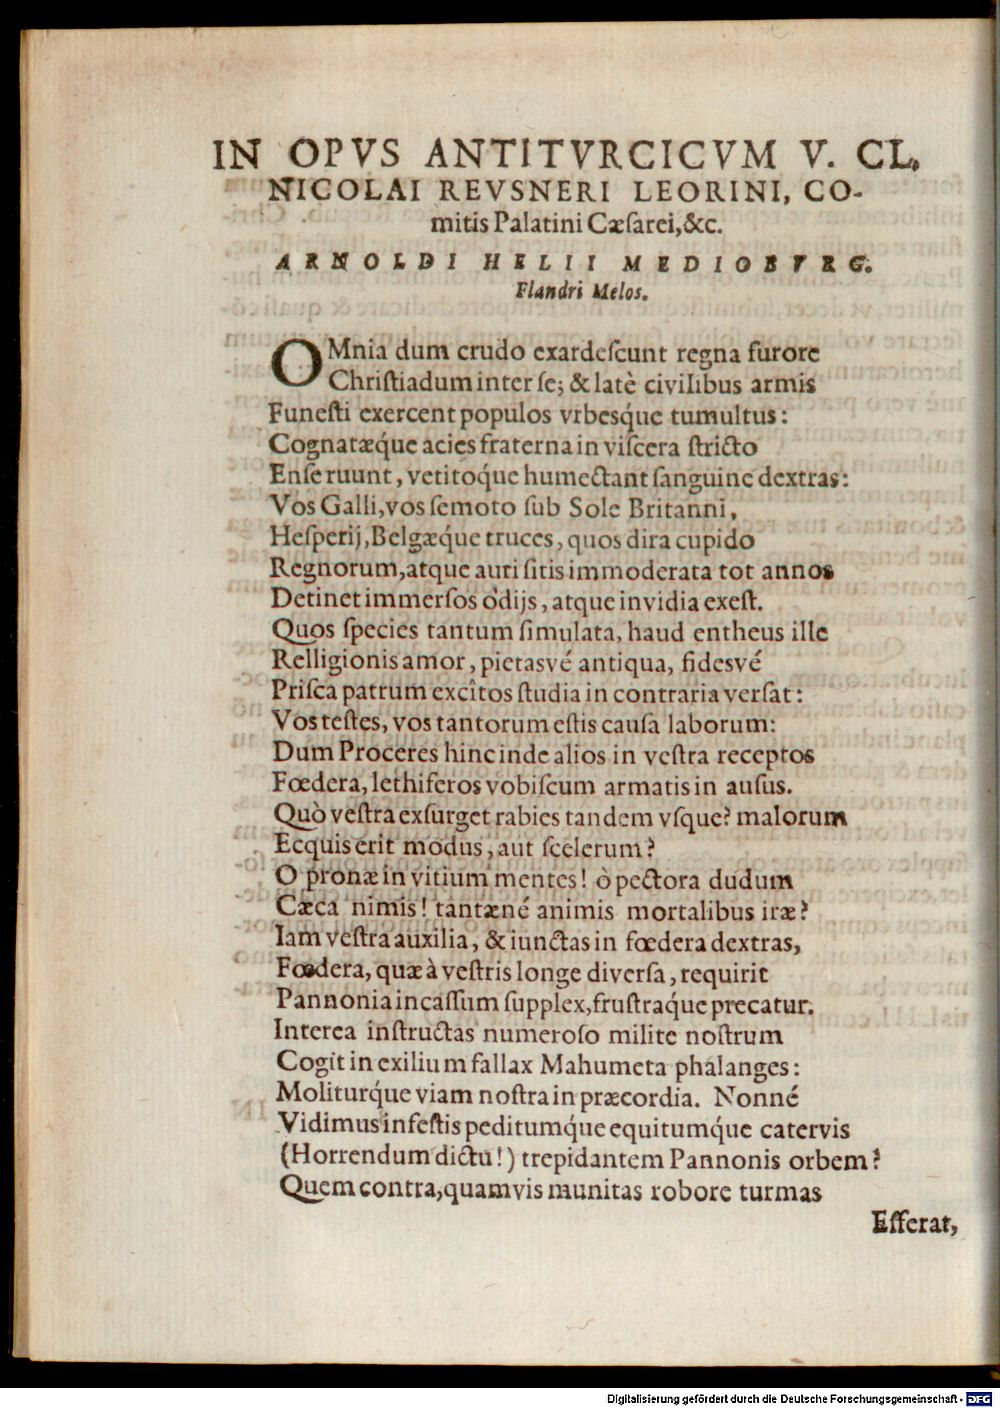 IN OPVS ANTITVRCICVM V. CL.
NICOLAI REVSNERI LEORINI, CO-
mitis Palatini Cæſarei,&c.
ARNOLDI HELII MEDIOBVRG.
Flandri Melos.
OMnia dum crudo exardeſcunt regna furore
Chriſtiadum inter ſe; & latè civilibus armis
Funeſti exercent populos vrbesq́ue tumultus:
Cognatæq́ue acies fraterna in viſcera ſtricto
Enſe ruunt, vetitoq́ue humectant ſanguine dextras:
Vos Galli, vos ſemoto ſub Sole Britanni,
Heſperij, Belgæq́ue truces, quos dira cupido
Regnorum, atque auri ſitis immoderata tot annos
Detinet immerſos odijs, atque invidia exeſt.
Quos ſpecies tantum ſimulata, haud entheus ille
Relligionis amor, pietasvé antiqua, fidesvé
Priſca patrum excîtos ſtudia in contraria verſat:
Vos teſtes, vos tantorum eſtis cauſa laborum:
Dum Proceres hinc inde alios in veſtra receptos
Fœdera, lethiferos vobiſcum armatis in auſus.
Quò veſtra exſurget rabies tandem vſque? malorum
Ecquis erit modus, aut ſcelerum?
O pronæ in vitium mentes! ò pectora dudum
Cæca nimis! tantæné animis mortalibus iræ?
Iam veſtra auxilia, & iunctas in fœdera dextras,
Fœdera, quæ à veſtris longe diverſa, requirit
Pannonia incaſſum ſupplex, fruſtraq́ue precatur.
Interea inſtructas numeroſo milite noſtrum
Cogit in exilium fallax Mahumeta phalanges:
Moliturq́ue viam noſtra in præcordia. Nonné
Vidimus infeſtis peditumq́ue equitumq́ue catervis
(Horrendum dictu!) trepidantem Pannonis orbem?
Quem contra, quamvis munitas robore turmas
Efferat,
Digitalisierung gefördert durch die Deutsche Forschungsgemeinschaft - DFG